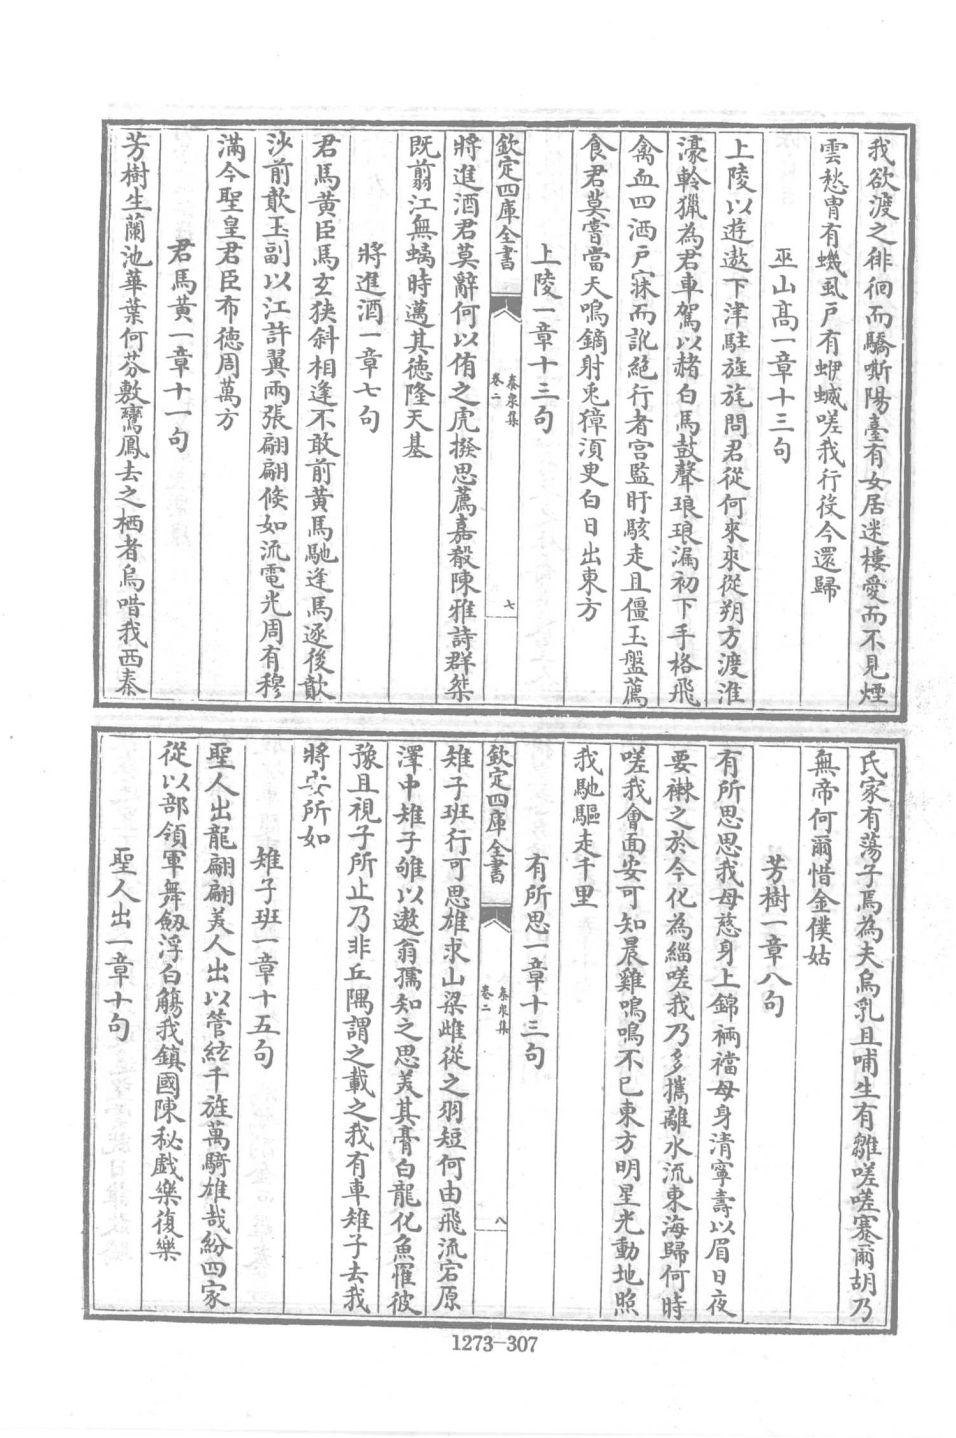 我欲渡之徘徊而驕嘶陽臺有女居迷樓愛而不見煙
雲愁冑有蟣虱戶有蛜蝛嗟我行役今還歸
巫山高一章十三句
上陵以遊遨下津駐旌旄問君從何來來從朔方渡淮
濠軨獵為君車駕以赭白馬鼓聲琅琅漏初下手格飛
禽血四洒戶寐而訛絕行者宮監盱駭走且僵玉盤薦
食君莫嘗當天鳴鏑射兎獐湏臾白日出東方
上陵一章十三句
欽定四庫全書
泰泉集
卷二
七
將進酒君莫辭何以侑之虎撥思薦嘉殽陳雅詩群桀
既翦江無螭時邁其德隆天基
將進酒一章七句
君馬黄臣馬玄狹斜相逢不敢前黄馬馳逢馬逐後歕
沙前歕玉副以江許翼兩張翩翩倏如流電光周有穆
滿今聖皇君臣布德周萬方
君馬黄一章十一句
芳樹生蘭池華葉何芬敷鸞鳳去之栖者烏唶我西秦
氏家有蕩子焉為夫烏乳且哺生有雛嗟嗟蹇爾胡乃
無帝何爾惜金僕姑
芳樹一章八句
有所思思我母慈身上錦裲襠母身清寧壽以眉日夜
要襋之於今化為緇嗟我乃多攜離水流東海歸何時
嗟我會面安可知晨雞鳴鳴不已東方明星光動地照
我馳驅走千里
有所思一章十三句
欽定四庫全書
泰泉集
卷二
八
雉子班行可思雄求山梁雌從之羽短何由飛流宕原
澤中雉子雊以遨翁孺知之思美其膏白龍化魚罹彼
豫且視子所止乃非丘隅謂之載之我有車雉子去我
將安所如
雉子班一章十五句
聖人出龍翩翩美人出以管絃千旌萬騎雄哉紛四家
從以部領軍舞劔浮白觴我鎮國陳秘戲樂復樂
聖人出一章十句
1273-307